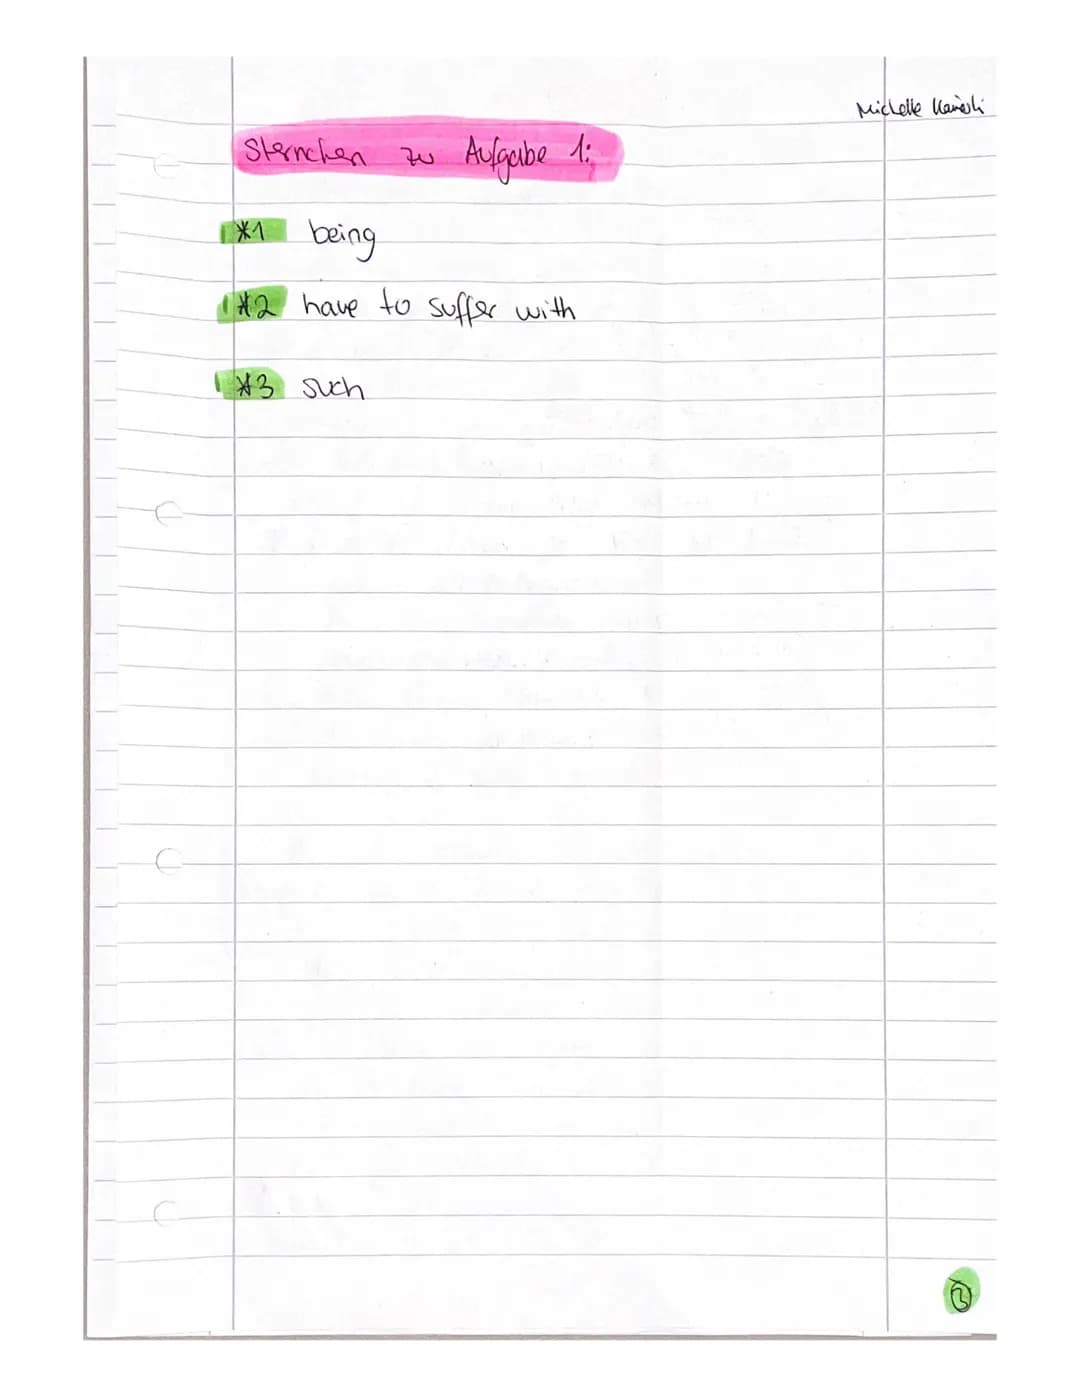 Michelle
Sternchen zu Aufgabe 1:
*1 being
*2 have to suffer with
*3 such
3